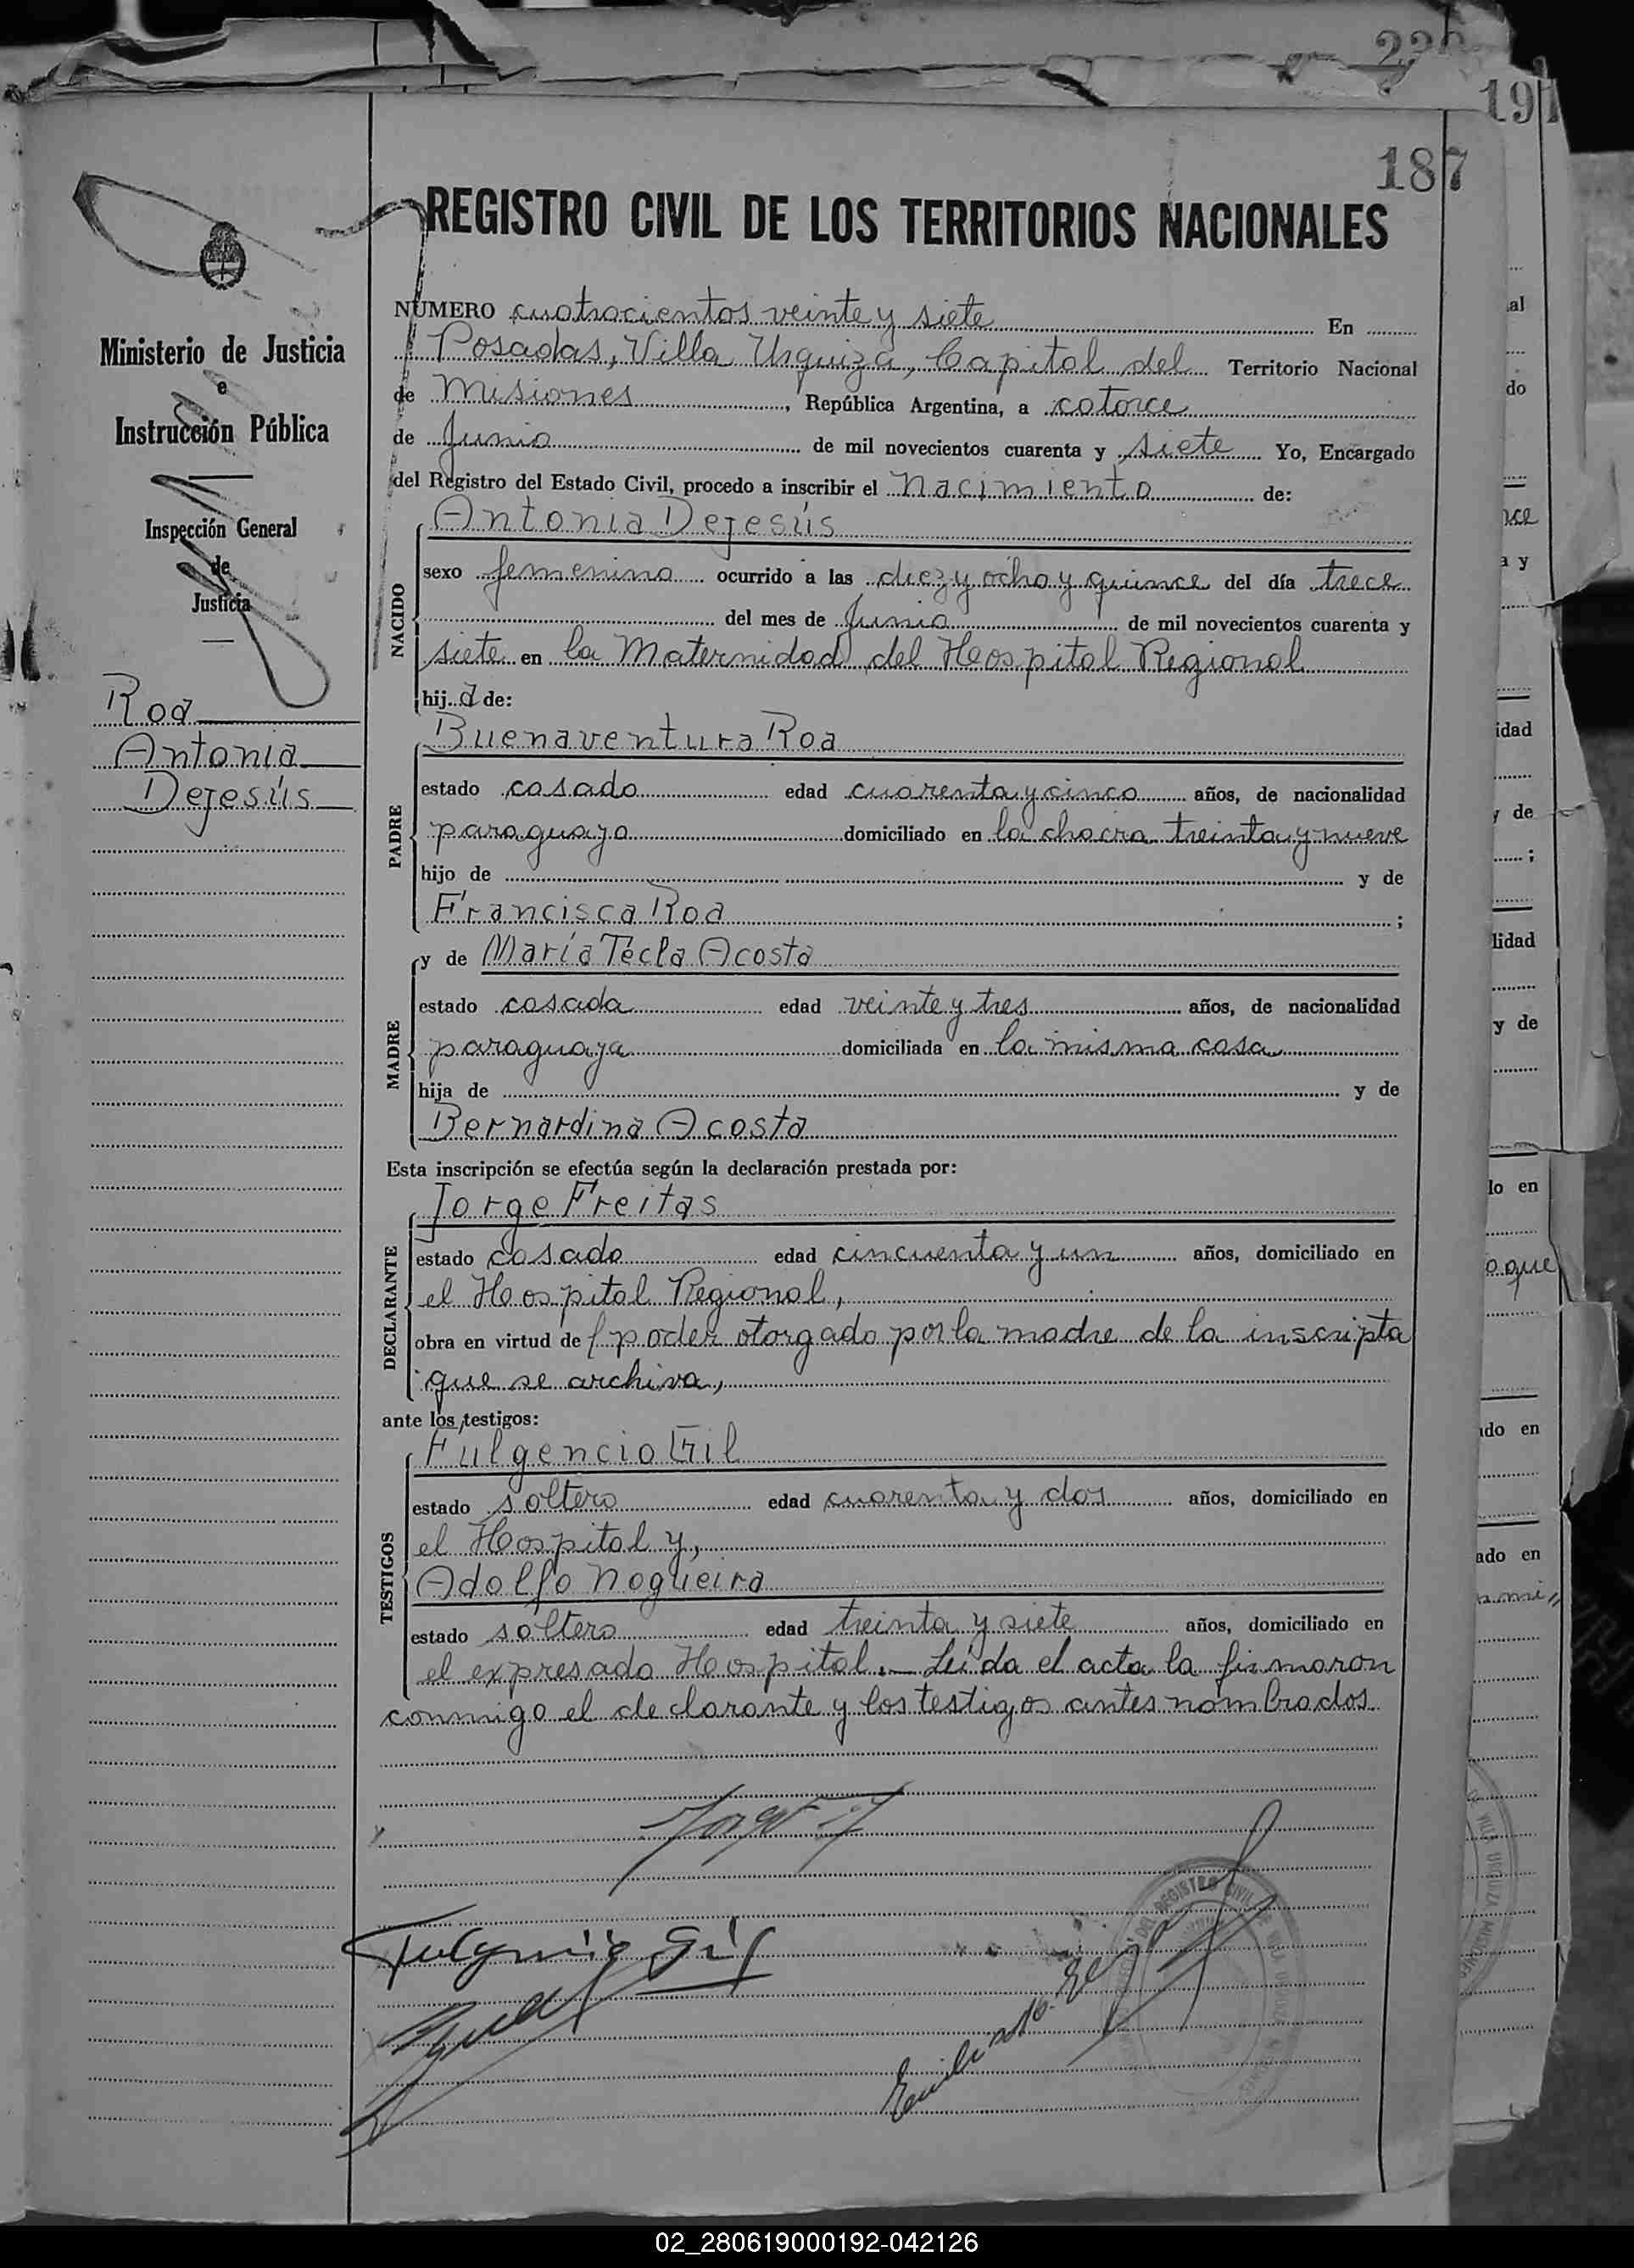 187
REGISTRO CIVIL DE LOS TERRITORIOS NACIONALES
Ministerio de Justicia
e
Instrucción Pública
Inspección General
de
Justicia
Roa
Antonia
Dejesús
NÚMERO cuatrocientos veinte y siete En
Posadas, Villa Urquiza, Capital del Territorio Nacional
de Misiones, República Argentina, a catorce
de Junio de mil novecientos cuarenta y siete Yo, Encargado
del Registro del Estado Civil, procedo a inscribir el Nacimiento de:
NACIDO
Antonia Dejesús
sexo femenino ocurrido a las diez y ocho y quince del día trece
del mes de Junio de mil novecientos cuarenta y
siete en la Maternidad del Hospital Regional
hij a de:
PADRE
Buenaventura Roa
estado casado edad cuarenta y cinco años, de nacionalidad
paraguayo domiciliado en la chacra treinta y nueve
hijo de y de
Francisca Roa ;
MADRE
y de María Tecla Acosta
estado casada edad veinte y tres años, de nacionalidad
paraguaya domiciliada en la misma casa
hija de y de
Bernardina Acosta
Esta inscripción se efectúa según la declaración prestada por:
DECLARANTE
Jorge Freitas
estado casado edad cincuenta y un años, domiciliado en
el Hospital Regional,
obra en virtud de poder otorgado por la madre de la inscripta
que se archiva,
ante los testigos:
TESTIGOS
Fulgencio Gil
estado soltero edad cuarenta y dos años, domiciliado en
el Hospital y,
Adolfo Nogueira
estado soltero edad treinta y siete años, domiciliado en
el expresado Hospital. Leida el acta la firmaron
conmigo el declarante y los testigos antes nombrados.
Fulgencio Gil
02_280619000192-042126